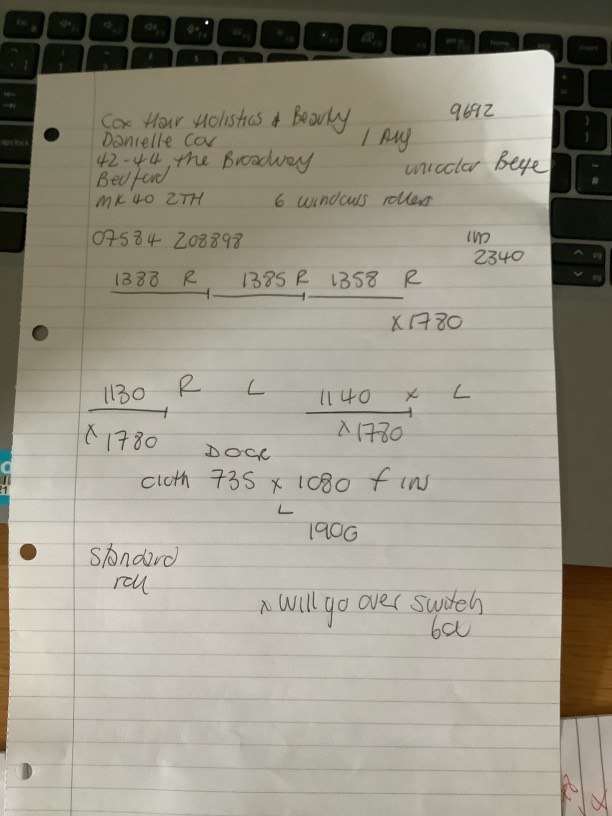 Cox Hair Holistics & Beauty 9692
Danielle Cox 1 Aug
42-44, the Broadway unicolor Beige
Bedford
MK 40 2TH 6 windows rollers
07584 208898
2340
1388 R 1385 R 1358 R
x 1780
1130 R L 1140 x L
x 1780 x 1780
DOOR
cloth 735 x 1080 f
L
1900
Standard
roll
x will go over switch
box